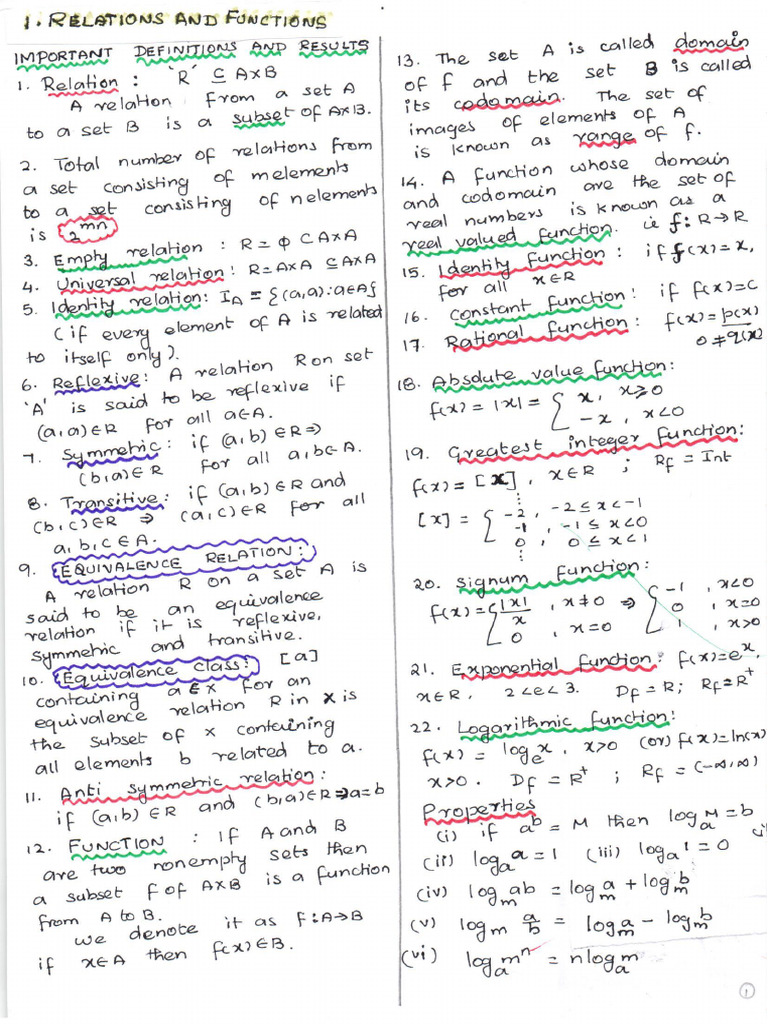 1. RELATIONS AND FUNCTIONS
IMPORTANT DEFINITIONS AND RESULTS
1. Relation : 'R' ⊆ A×B
A relation from a set A
to a set B is a subset of A×B.
2. Total number of relations from
a set consisting of m elements
to a set consisting of n elements
is 2^mn
3. Empty relation : R = ϕ ⊂ A×A
4. Universal relation : R = A×A ⊆ A×A
5. Identity relation : I_A = {(a,a) : a∈A}
(if every element of A is related
to itself only).
6. Reflexive : A relation R on set
'A' is said to be reflexive if
(a,a)∈R for all a∈A.
7. Symmetric : if (a,b)∈R ⇒
(b,a)∈R for all a,b∈A.
8. Transitive : if (a,b)∈R and
(b,c)∈R ⇒ (a,c)∈R for all
a,b,c∈A.
9. EQUIVALENCE RELATION :
A relation R on a set A is
said to be an equivalence
relation if it is reflexive,
symmetric and transitive.
10. Equivalence class : [a]
containing a∈x for an
equivalence relation R in x is
the subset of x containing
all elements b related to a.
11. Anti symmetric relation :
if (a,b)∈R and (b,a)∈R ⇒ a=b
12. FUNCTION : If A and B
are two nonempty sets then
a subset f of A×B is a function
from A to B.
we denote it as f : A→B
if x∈A then f(x)∈B.
13. The set A is called domain
of f and the set B is called
its codomain. The set of
images of elements of A
is known as range of f.
14. A function whose domain
and codomain are the set of
real numbers is known as a
real valued function. ie f : R→R
15. Identity function : if f(x) = x,
for all x∈R
16. Constant function : if f(x) = c
17. Rational function : f(x) = p(x)
0 ≠ q(x)
18. Absolute value function :
f(x) = |x| = { x, x≥0
-x, x<0
19. Greatest integer function :
f(x) = [x], x∈R ; R_f = Int
⋮
[x] = { -2, -2≤x<-1
-1, -1≤x<0
0, 0≤x<1
⋮
20. Signum function :
f(x) = { |x|/x, x≠0 ⇒ { -1, x<0
0, x=0
0, x=0
1, x>0
21. Exponential function : f(x) = e^x,
x∈R, 2<e<3. D_f = R ; R_f = R⁺
22. Logarithmic function :
f(x) = log_e x, x>0 (or) f(x) = ln(x)
x>0. D_f = R⁺ ; R_f = (-∞,∞)
Properties
(i) if a^b = M then log_a M = b
(ii) log_a a = 1 (iii) log_a 1 = 0
(iv) log_m ab = log_m a + log_m b
(v) log_m a/b = log_m a - log_m b
(vi) log_a m^n = n log_a m
1